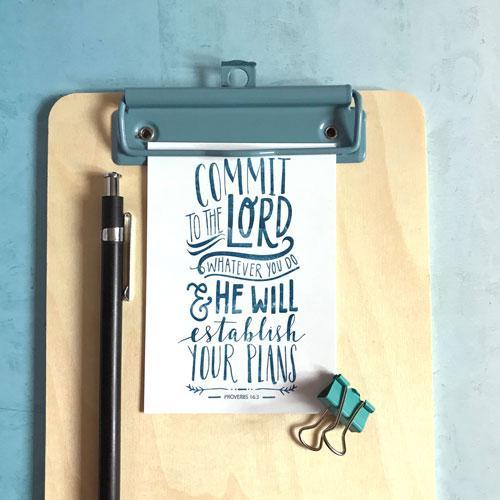 COMMIT
TO THE LORD
WHATEVER YOU DO
& HE WILL
establish
YOUR PLANS
PROVERBS 16:3